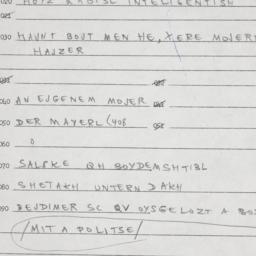 020 HOTZ RADISL INTELIGENTISH
021
030 HAUNT BOUT MEN HE, XERE MOJER
HAJZER
040 AN EJGENEM MOJER
050 DER MAYERL (408
060 0
070 SALSKE QH BOYDEMSHTIBL
080 SHETAKH UNTERN DAKH
090 BEJDIMER SC QV OYSGELOZT A BO
/MIT A POLITSE/